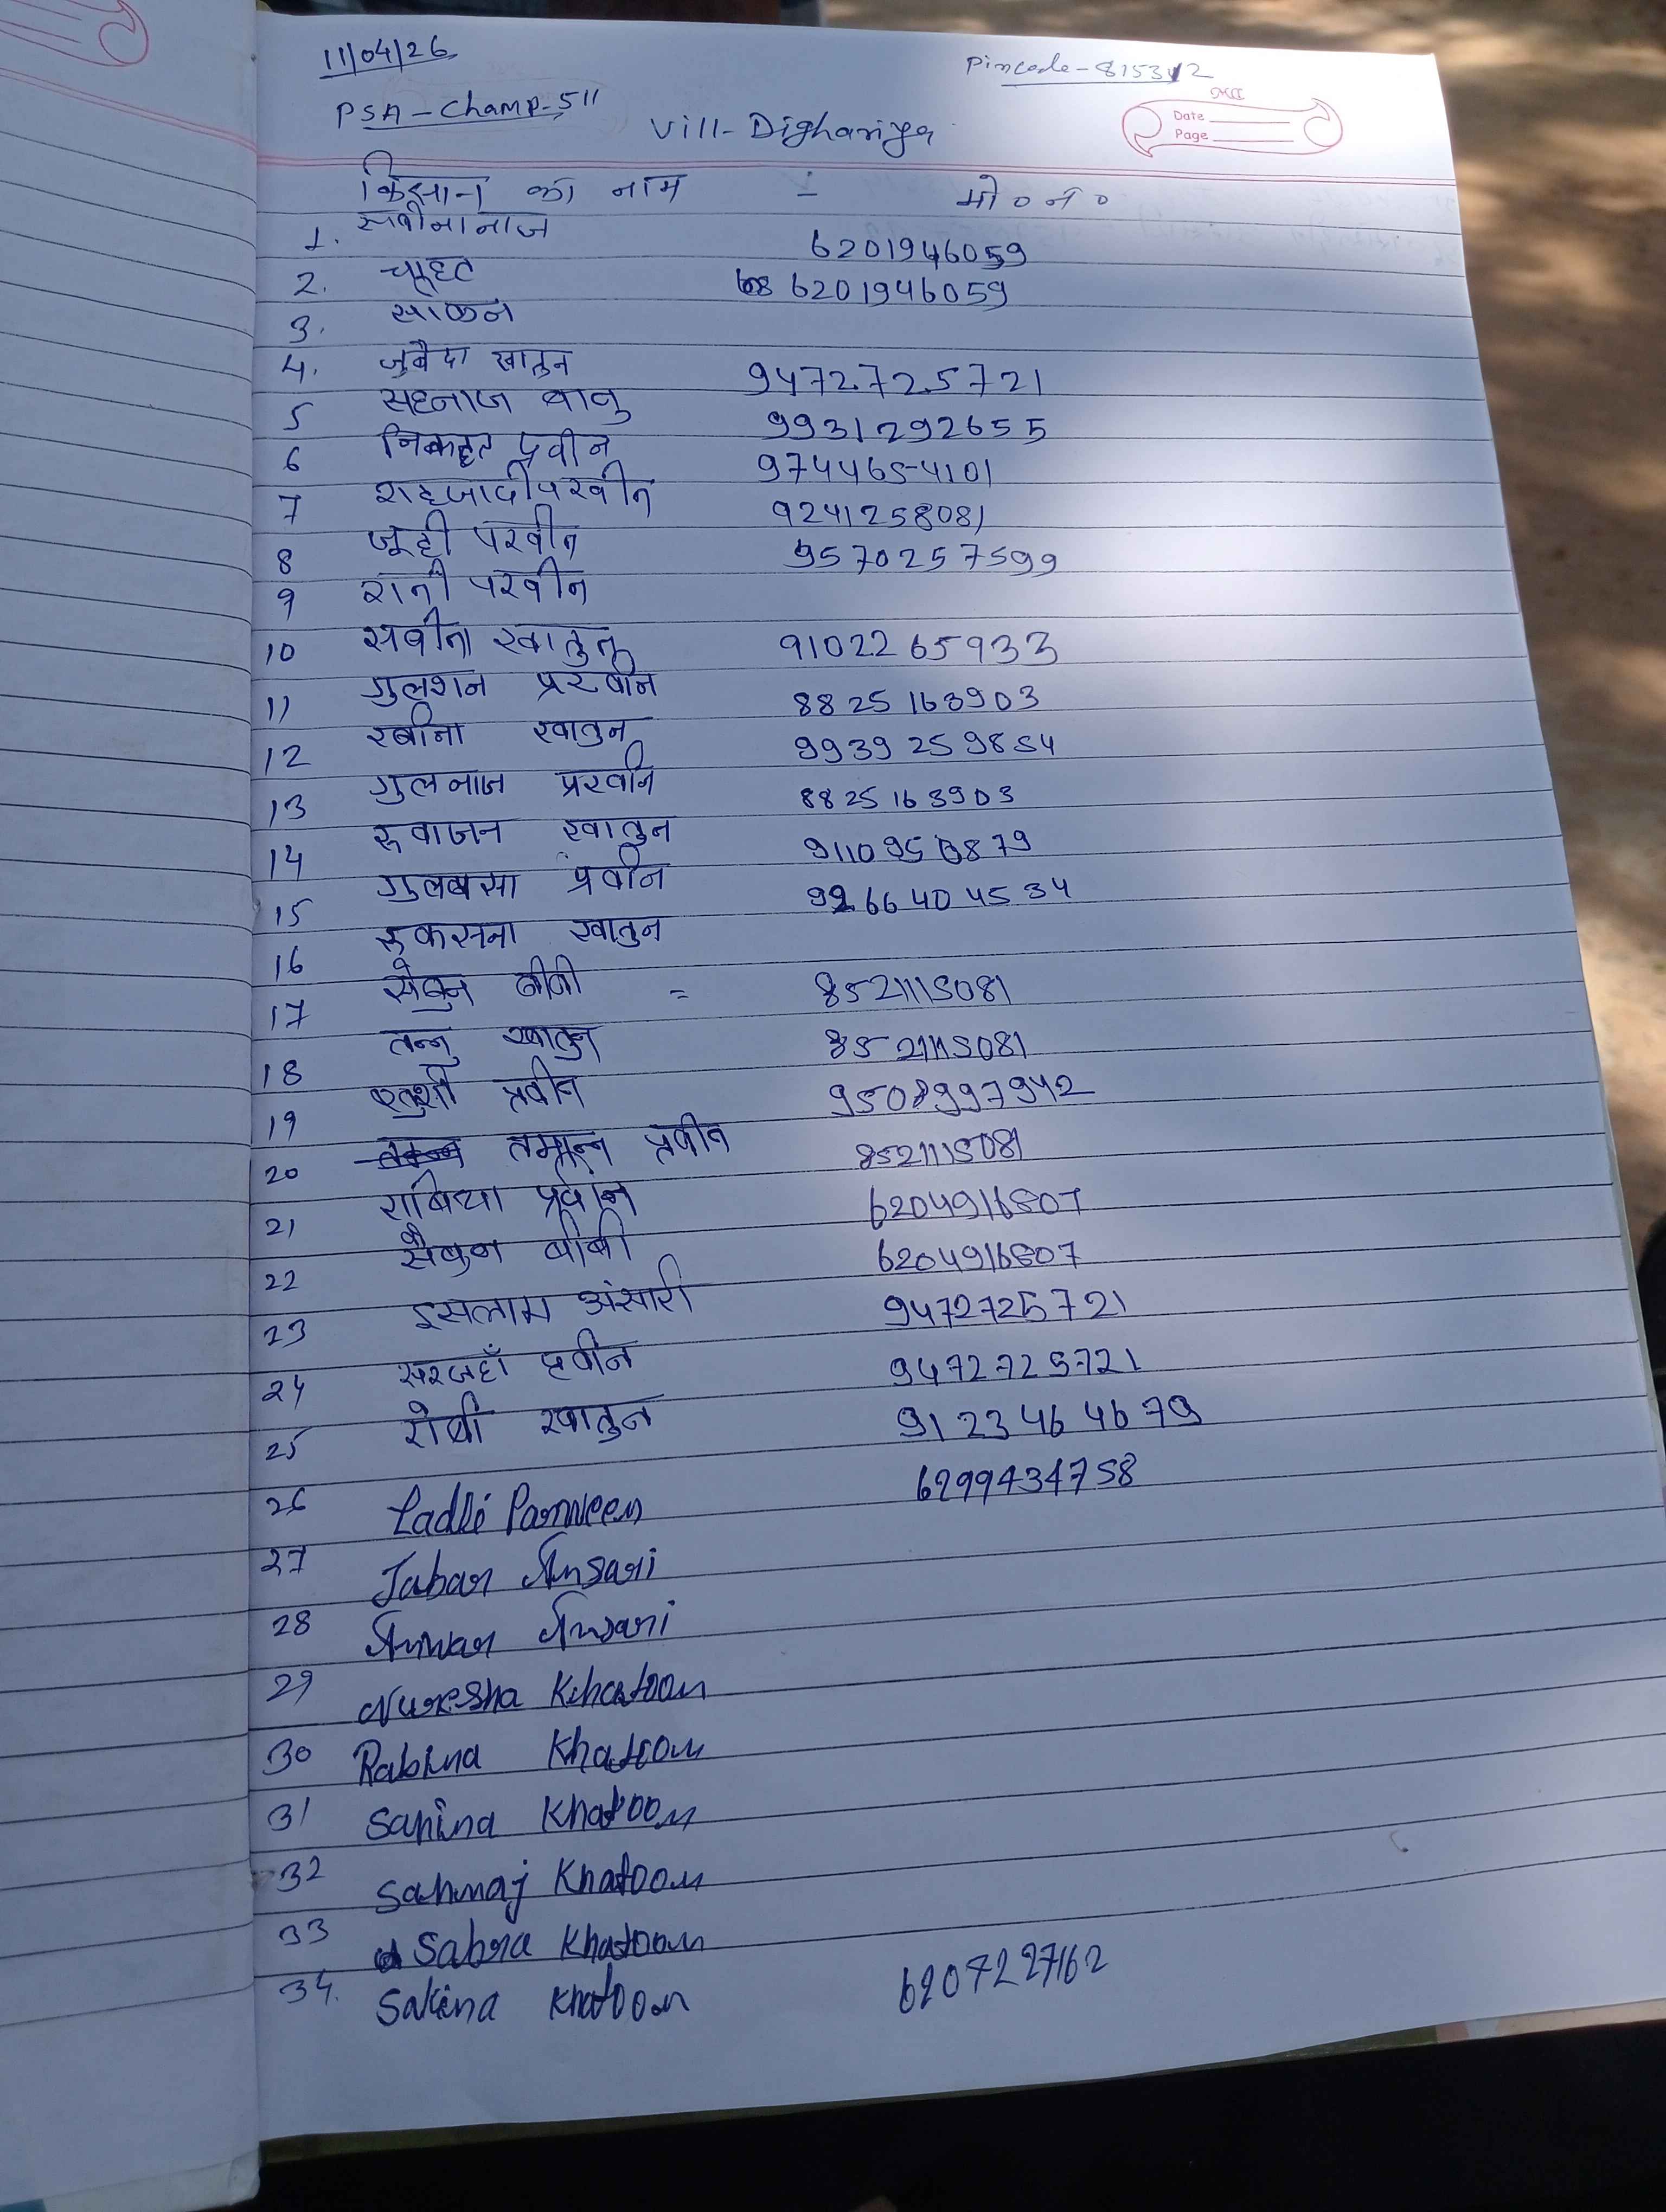 11/04/26
Pincode-815312
PSA-Champ-511
Vill-Dighariya
Date
Page
किसान का नाम - मो०न०
1. सबीना नाज 6201946059
2. चाहत 6201946059
3. साकन
4. जुबैदा खातुन 9472725721
5 सहनाज बानु 9931292655
6 निकहत प्रवीन 9744654101
7 शहजादी परवीन 9241258081
8 जूही परवीन 9570257599
9 रानी परवीन
10 सबीना खातुन 9102265933
11 गुलशन प्ररवीन 8825163903
12 रबीना खातुन 9939259854
13 गुलनाज प्ररवीन 8825163903
14 रुवाजन खातुन
15 गुलबसा प्रवीन 9266404534
16 रुकसाना खातुन
17 सेबुन बीबी = 8521115081
18 तन्नु खातुन 8521115081
19 खुशी प्रवीन 9508997942
20 तमान्न प्रवीन 8521115081
21 राबिया प्रवीन 6204916807
22 सैबुन बीबी 6204916807
23 इसलाम अंसारी 9472725721
24 सरजहाँ प्रवीन 9472725721
25 रोबी खातुन 9123464679
26 Ladli Parween 6299434758
27 Jabar Ansari
28 Anwar Ansari
29 Nuresha Khatoon
30 Rabina Khatoon
31 Sahina Khatoon
32 Sahnaj Khatoon
33 Sabra Khatoon
34. Sakina Khatoon 6207227162